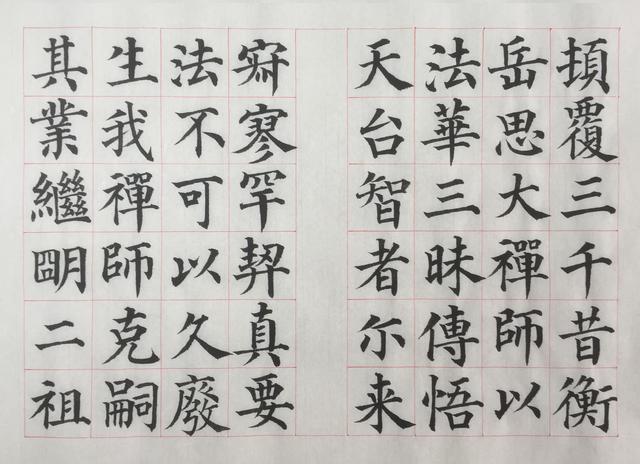 頂覆三千昔衡
岳思大禪師以
法華三昧傳悟
天台智者尔来
寂寥罕契真要
法不可以久廢
生我禪師克嗣
其業繼明二祖